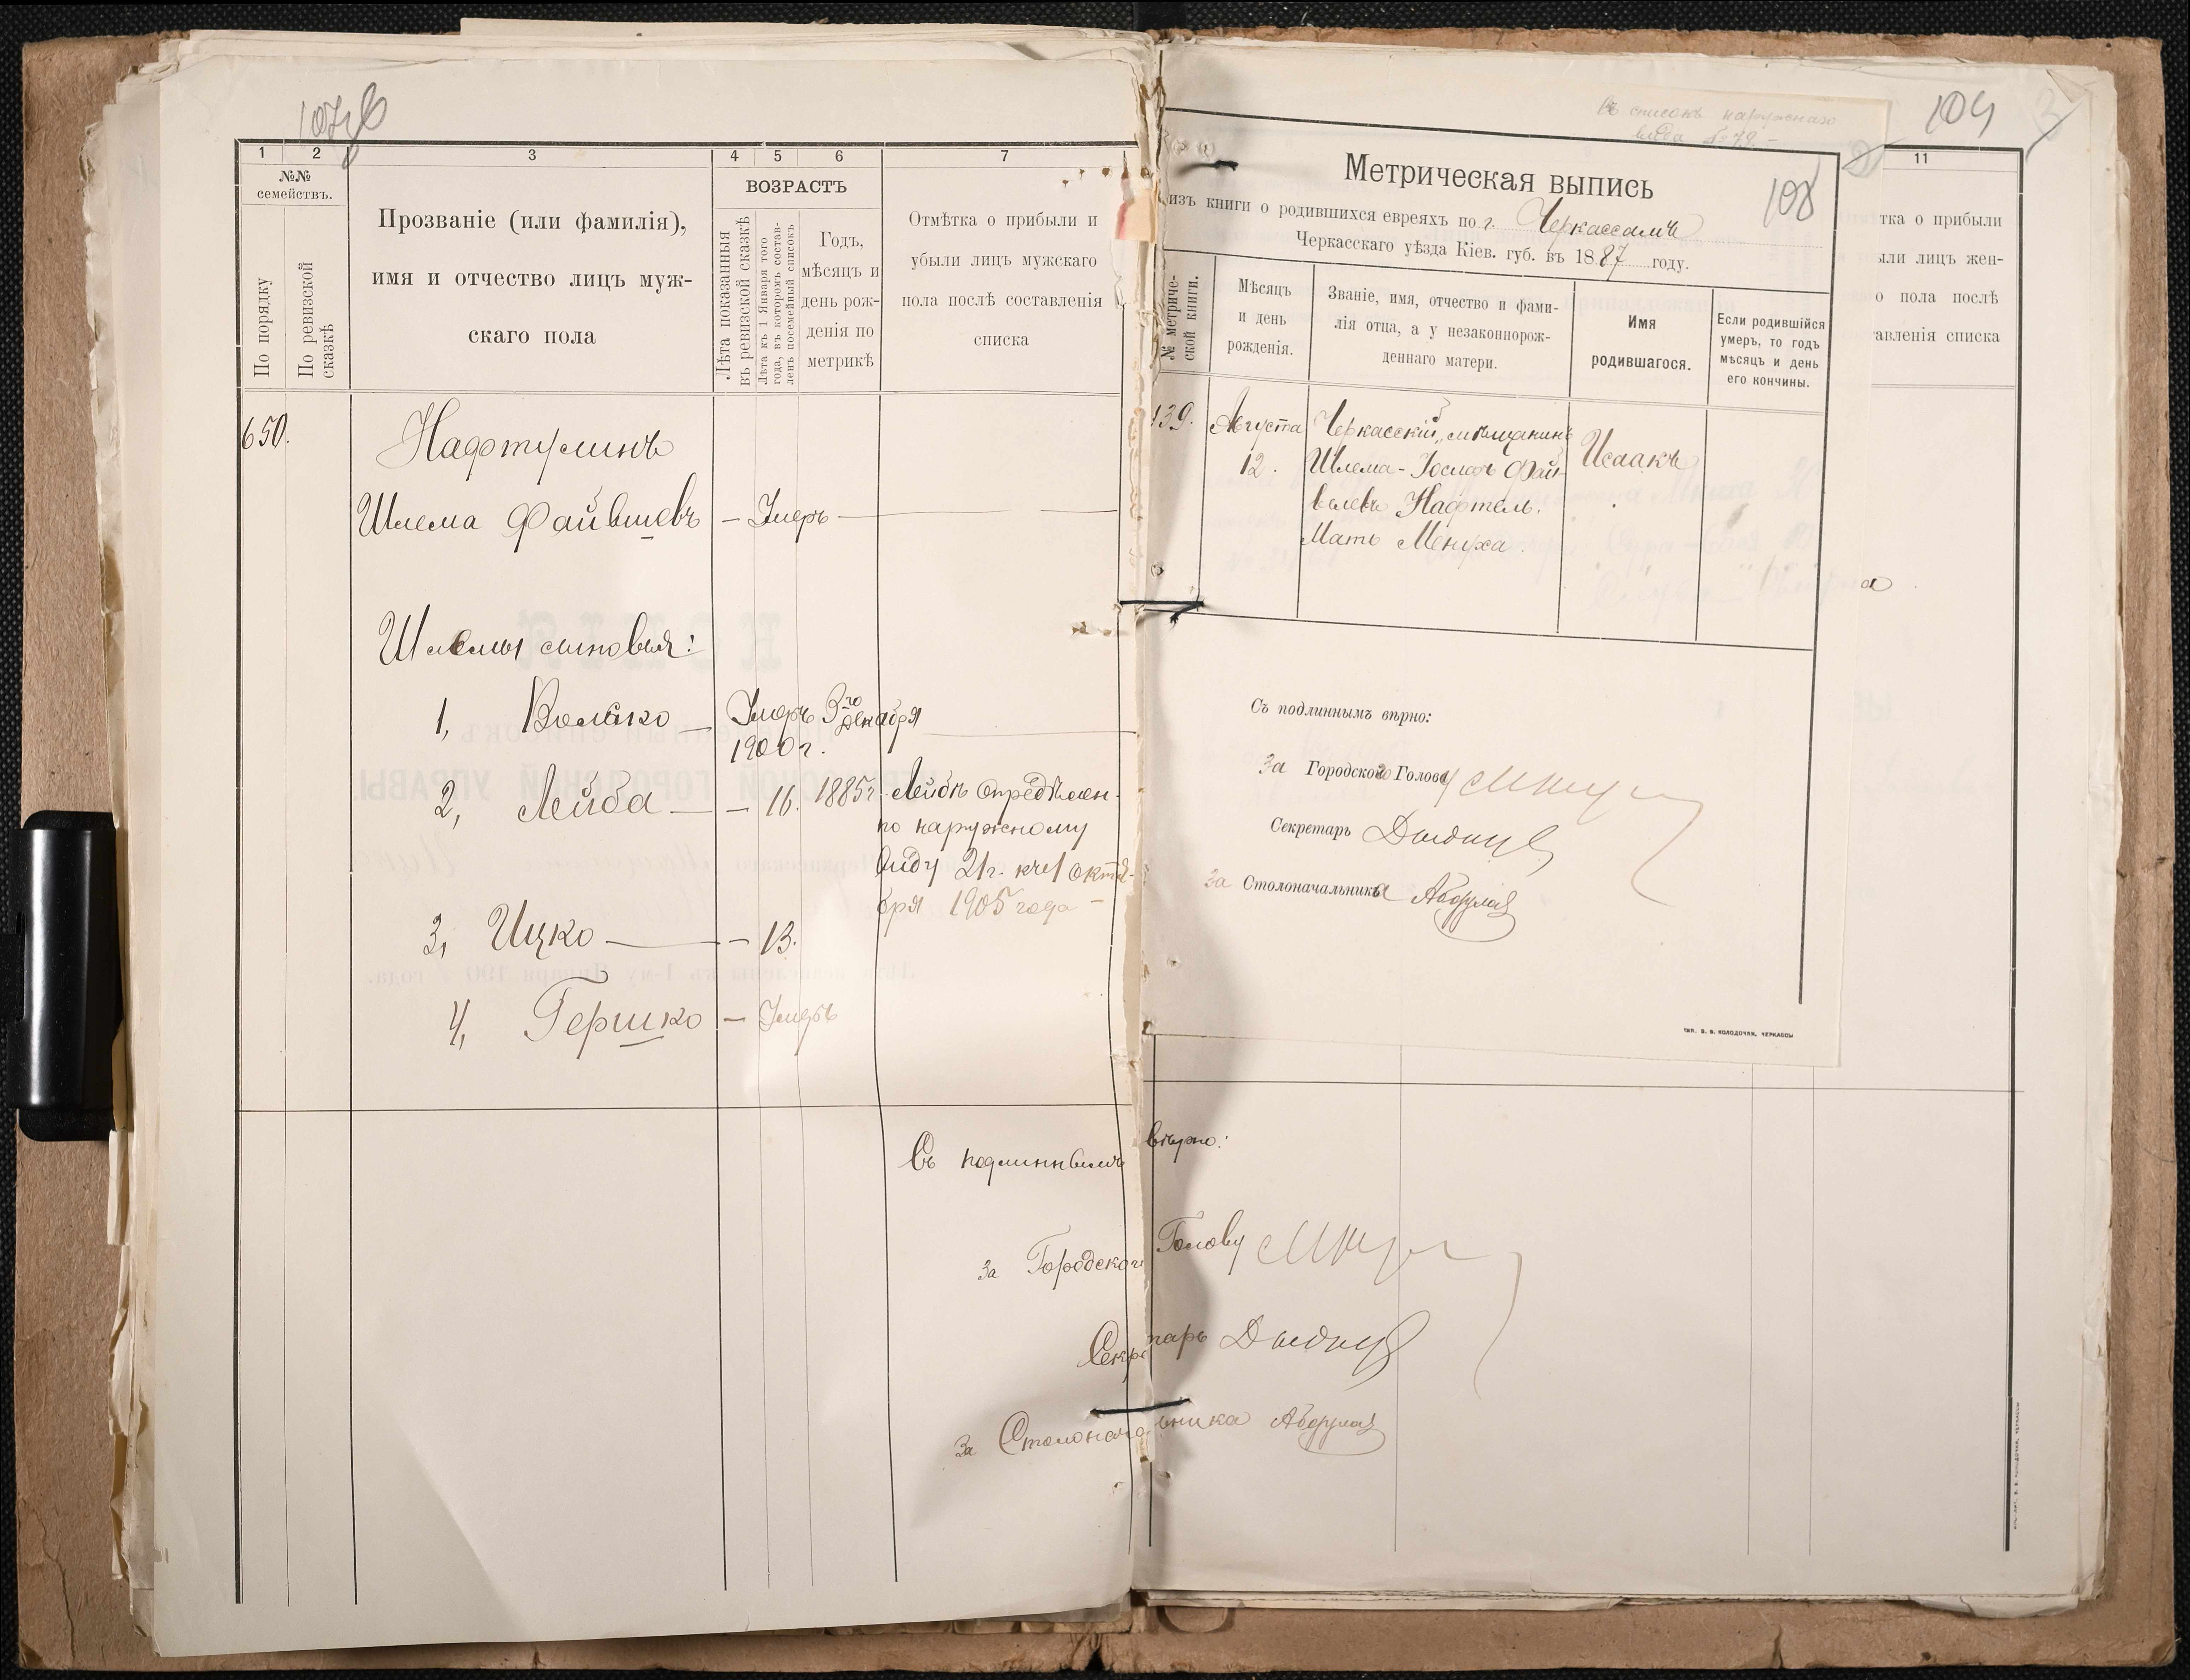 1
2
3
4
5
6
7
№№
семействъ.
По порядку
По ревизской
сказкѣ
Прозваніе (или фамилія),
имя и отчество лицъ муж-
скаго пола
ВОЗРАСТЪ
Лѣта показанныя
въ ревизской сказкѣ
Лѣта къ 1 Января того
года, въ которомъ состав-
ленъ посемейный списокъ
Годъ,
мѣсяцъ и
день рож-
денія по
метрикѣ
Отмѣтка о прибыли и
убыли лицъ мужскаго
пола послѣ составленія
списка
650.
Нафтулинъ
Шлема Файвишевъ — Умеръ —
Шлемы сыновья:
1, Волько — Умеръ 3го декабря
1900 г.
2, Лейба — 16. 1885 г. Лейбѣ опредѣлен-
по наружному
виду 21 г. къ 1 октя-
бря 1905 года —
3, Ицко — 13.
4, Гершко — Умеръ
Съ подлиннымъ вѣрно:
За Городского Голову
Секретарь
За Столоначальника
104
Въ списокъ наружнаго
вида № 79. —
108
Метрическая выпись
изъ книги о родившихся евреяхъ по г. Черкассамъ
Черкасскаго уѣзда Кіев. губ. въ 1887 году.
№ метриче-
ской книги.
Мѣсяцъ
и день
рожденія.
Званіе, имя, отчество и фами-
лія отца, а у незаконнорож-
деннаго матери.
Имя
родившагося.
Если родившійся
умеръ, то годъ
мѣсяцъ и день
его кончины.
139.
Августа
12.
Черкасскій мѣщанинъ
Шлема-Іосифъ Фай-
велевъ Нафтель.
Мать Менуха.
Исаакъ
Съ подлиннымъ вѣрно:
За Городского Голову
Секретарь
За Столоначальника
ТИП. В. В. КОЛОДОЧКИ, ЧЕРКАССЫ
11
тка о прибыли
ыли лицъ жен-
о пола послѣ
тавленія списка
а